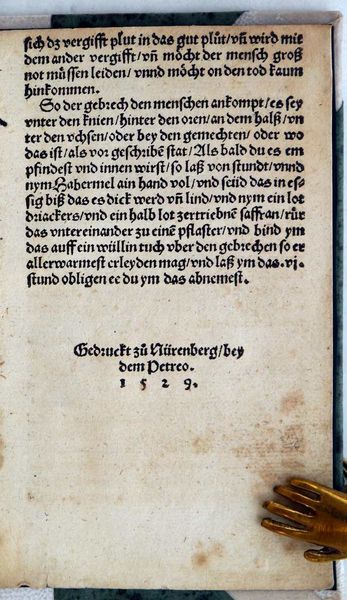 sich dz vergifft plut in das gut plůt/vñ wird mit
dem ander vergifft/vñ möcht der mensch groß
not müssen leiden/vnnd möcht on den tod kaum
hinkommen.
So der gebrech den menschen ankompt/es sey
vnter den knien/hinter den oren/an dem halß/vn
ter den vchsen/oder bey den gemechten/oder wo
das ist/als vor geschribē stat/Als bald du es em
pfindest vnd innen wirst/so laß von stundt/vnnd
nym Habermel ain hand vol/vnd seüd das in es-
sig biß das es dick werd vñ lind/vnd nym ein lot
driackers/vnd ein halb lot zertribnē saffran/rür
das vntereinander zu einē pflaster/vnd bind ym
das auff ein wüllin tuch vber den gebrechen so er
allerwarmest erleyden mag/vnd laß ym das .vi.
stund obligen ee du ym das abnemest.
Gedruckt zů Nürenberg/bey
dem Petreo.
1 5 2 9.